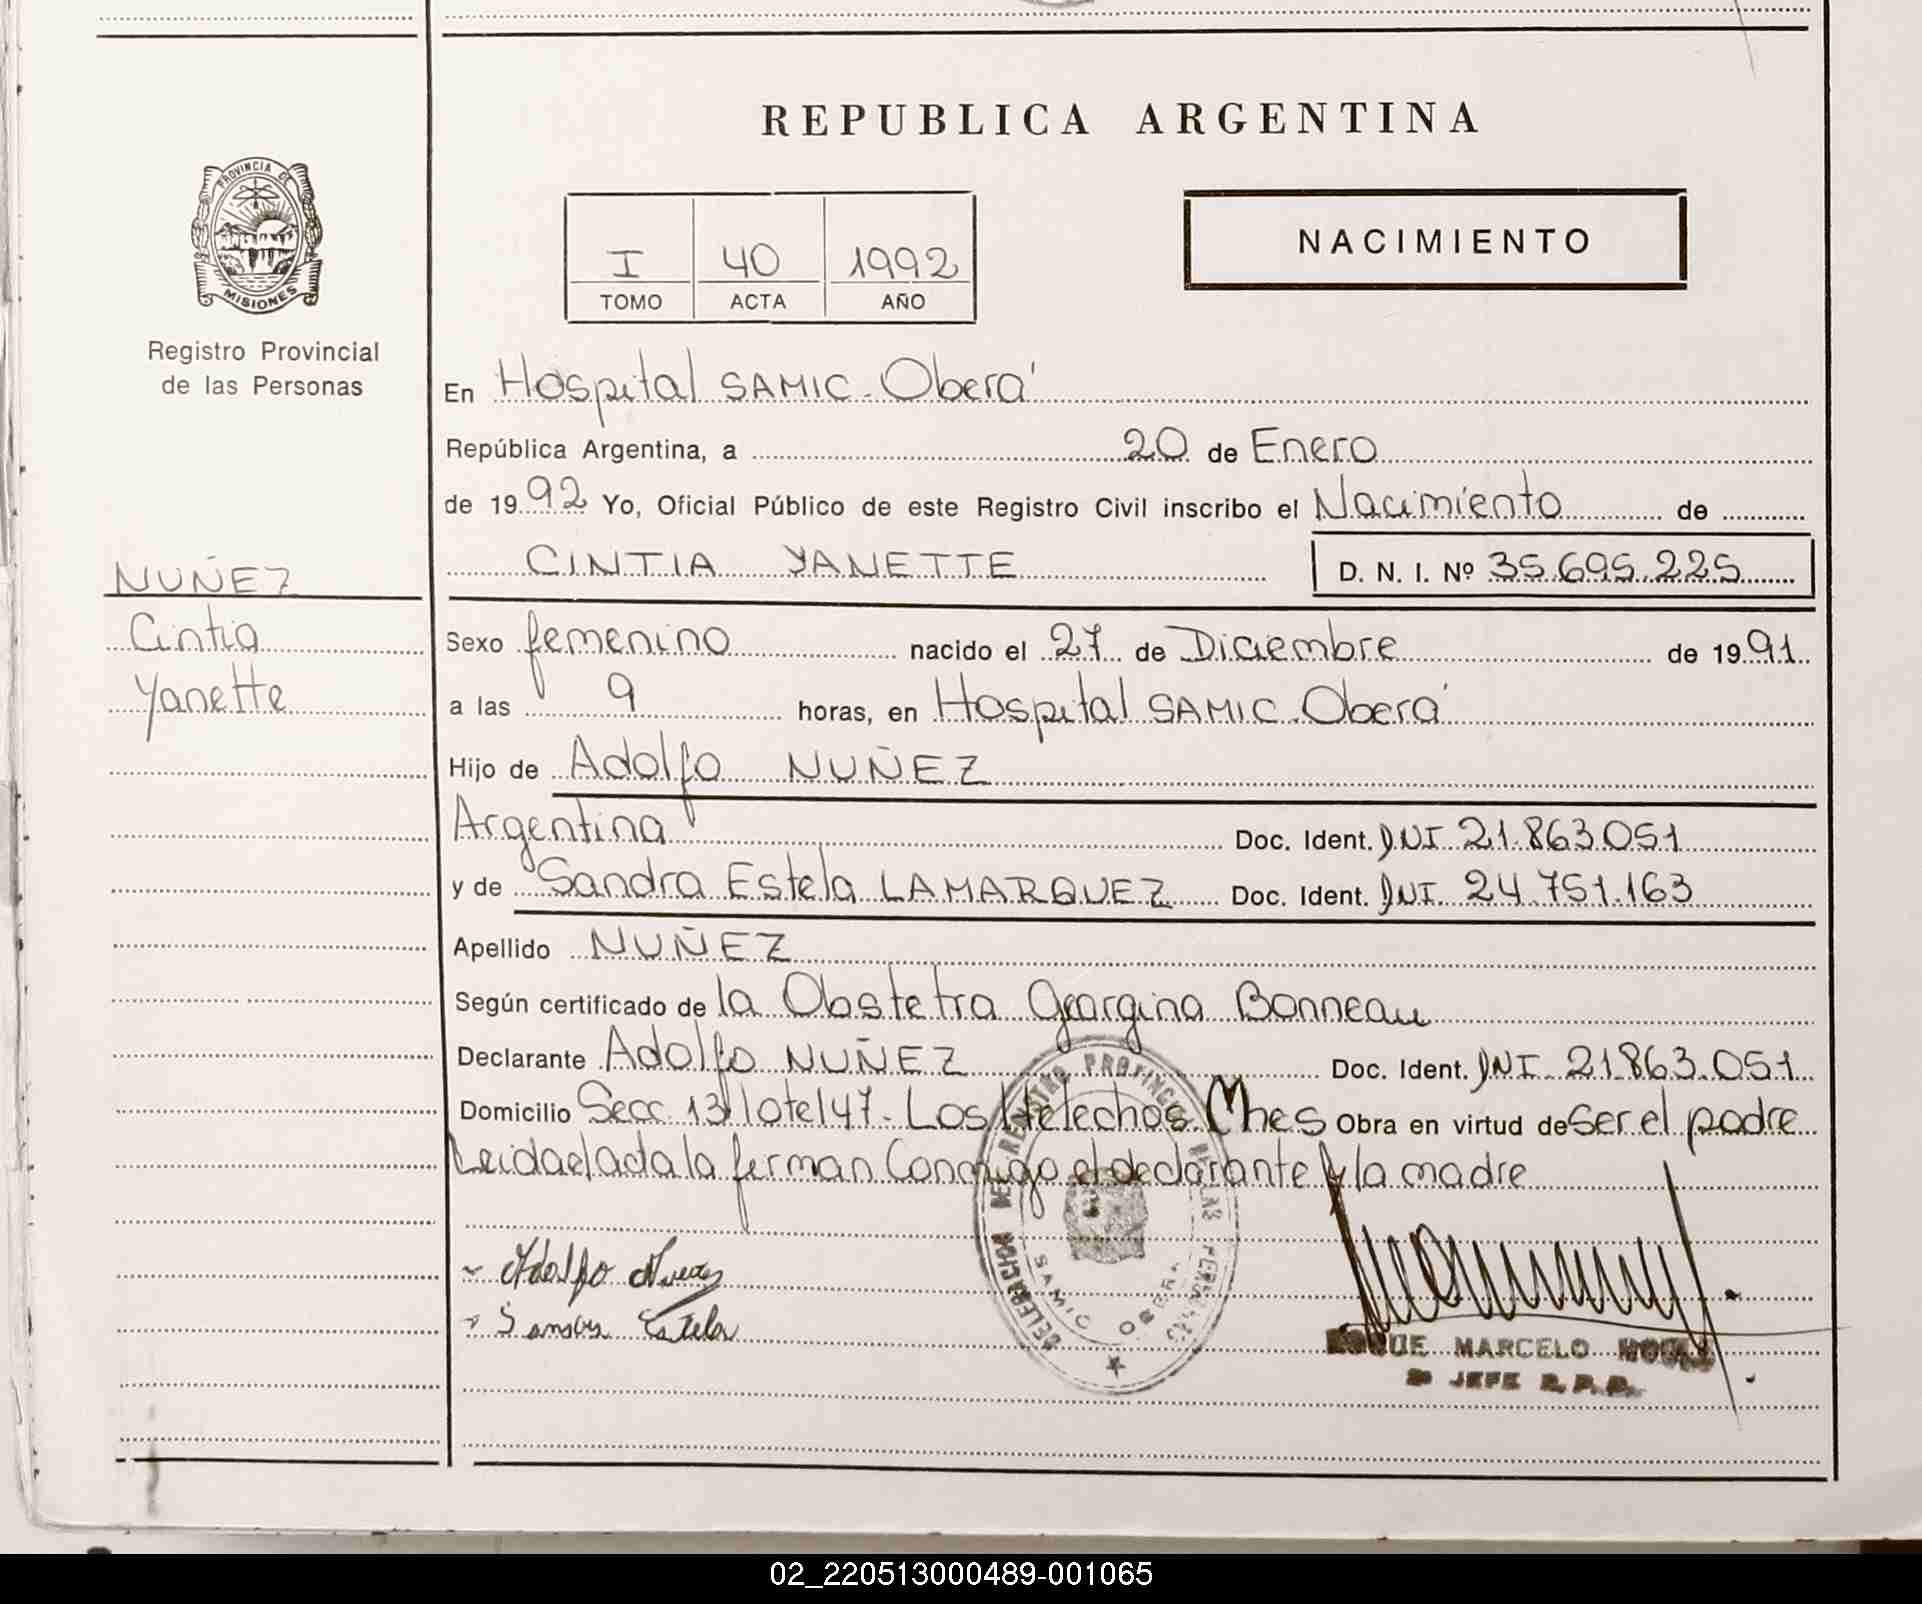 REPUBLICA ARGENTINA
PROVINCIA DE
MISIONES
Registro Provincial
de las Personas
I 40 1992
TOMO ACTA AÑO
NACIMIENTO
En Hospital SAMIC - Oberá
República Argentina, a 20 de Enero
de 1992 Yo, Oficial Público de este Registro Civil inscribo el Nacimiento de
CINTIA YANETTE D. N. I. Nº 35.695.225
NUÑEZ
Cintia
Yanette
Sexo femenino nacido el 27 de Diciembre de 1991
a las 9 horas, en Hospital SAMIC - Oberá
Hijo de Adolfo NUÑEZ
Argentina Doc. Ident. DNI 21.863.051
y de Sandra Estela LAMARQUEZ Doc. Ident. DNI. 24.751.163
Apellido NUÑEZ
Según certificado de la Obstetra Georgina Bonneau
Declarante Adolfo NUÑEZ Doc. Ident. DNI 21.863.051
Domicilio Secc. 13 lote 147 - Los Helechos Mnes Obra en virtud de ser el padre
Leida el acta la ferman Conmigo el declarante y la madre
DELEGACION DEL REGISTRO PROVINCIAL DE LAS PERSONAS
SAMIC OBERA
Adolfo Nuez
Sandra Estela
ROQUE MARCELO
2º JEFE R. P. P.
02_220513000489-001065